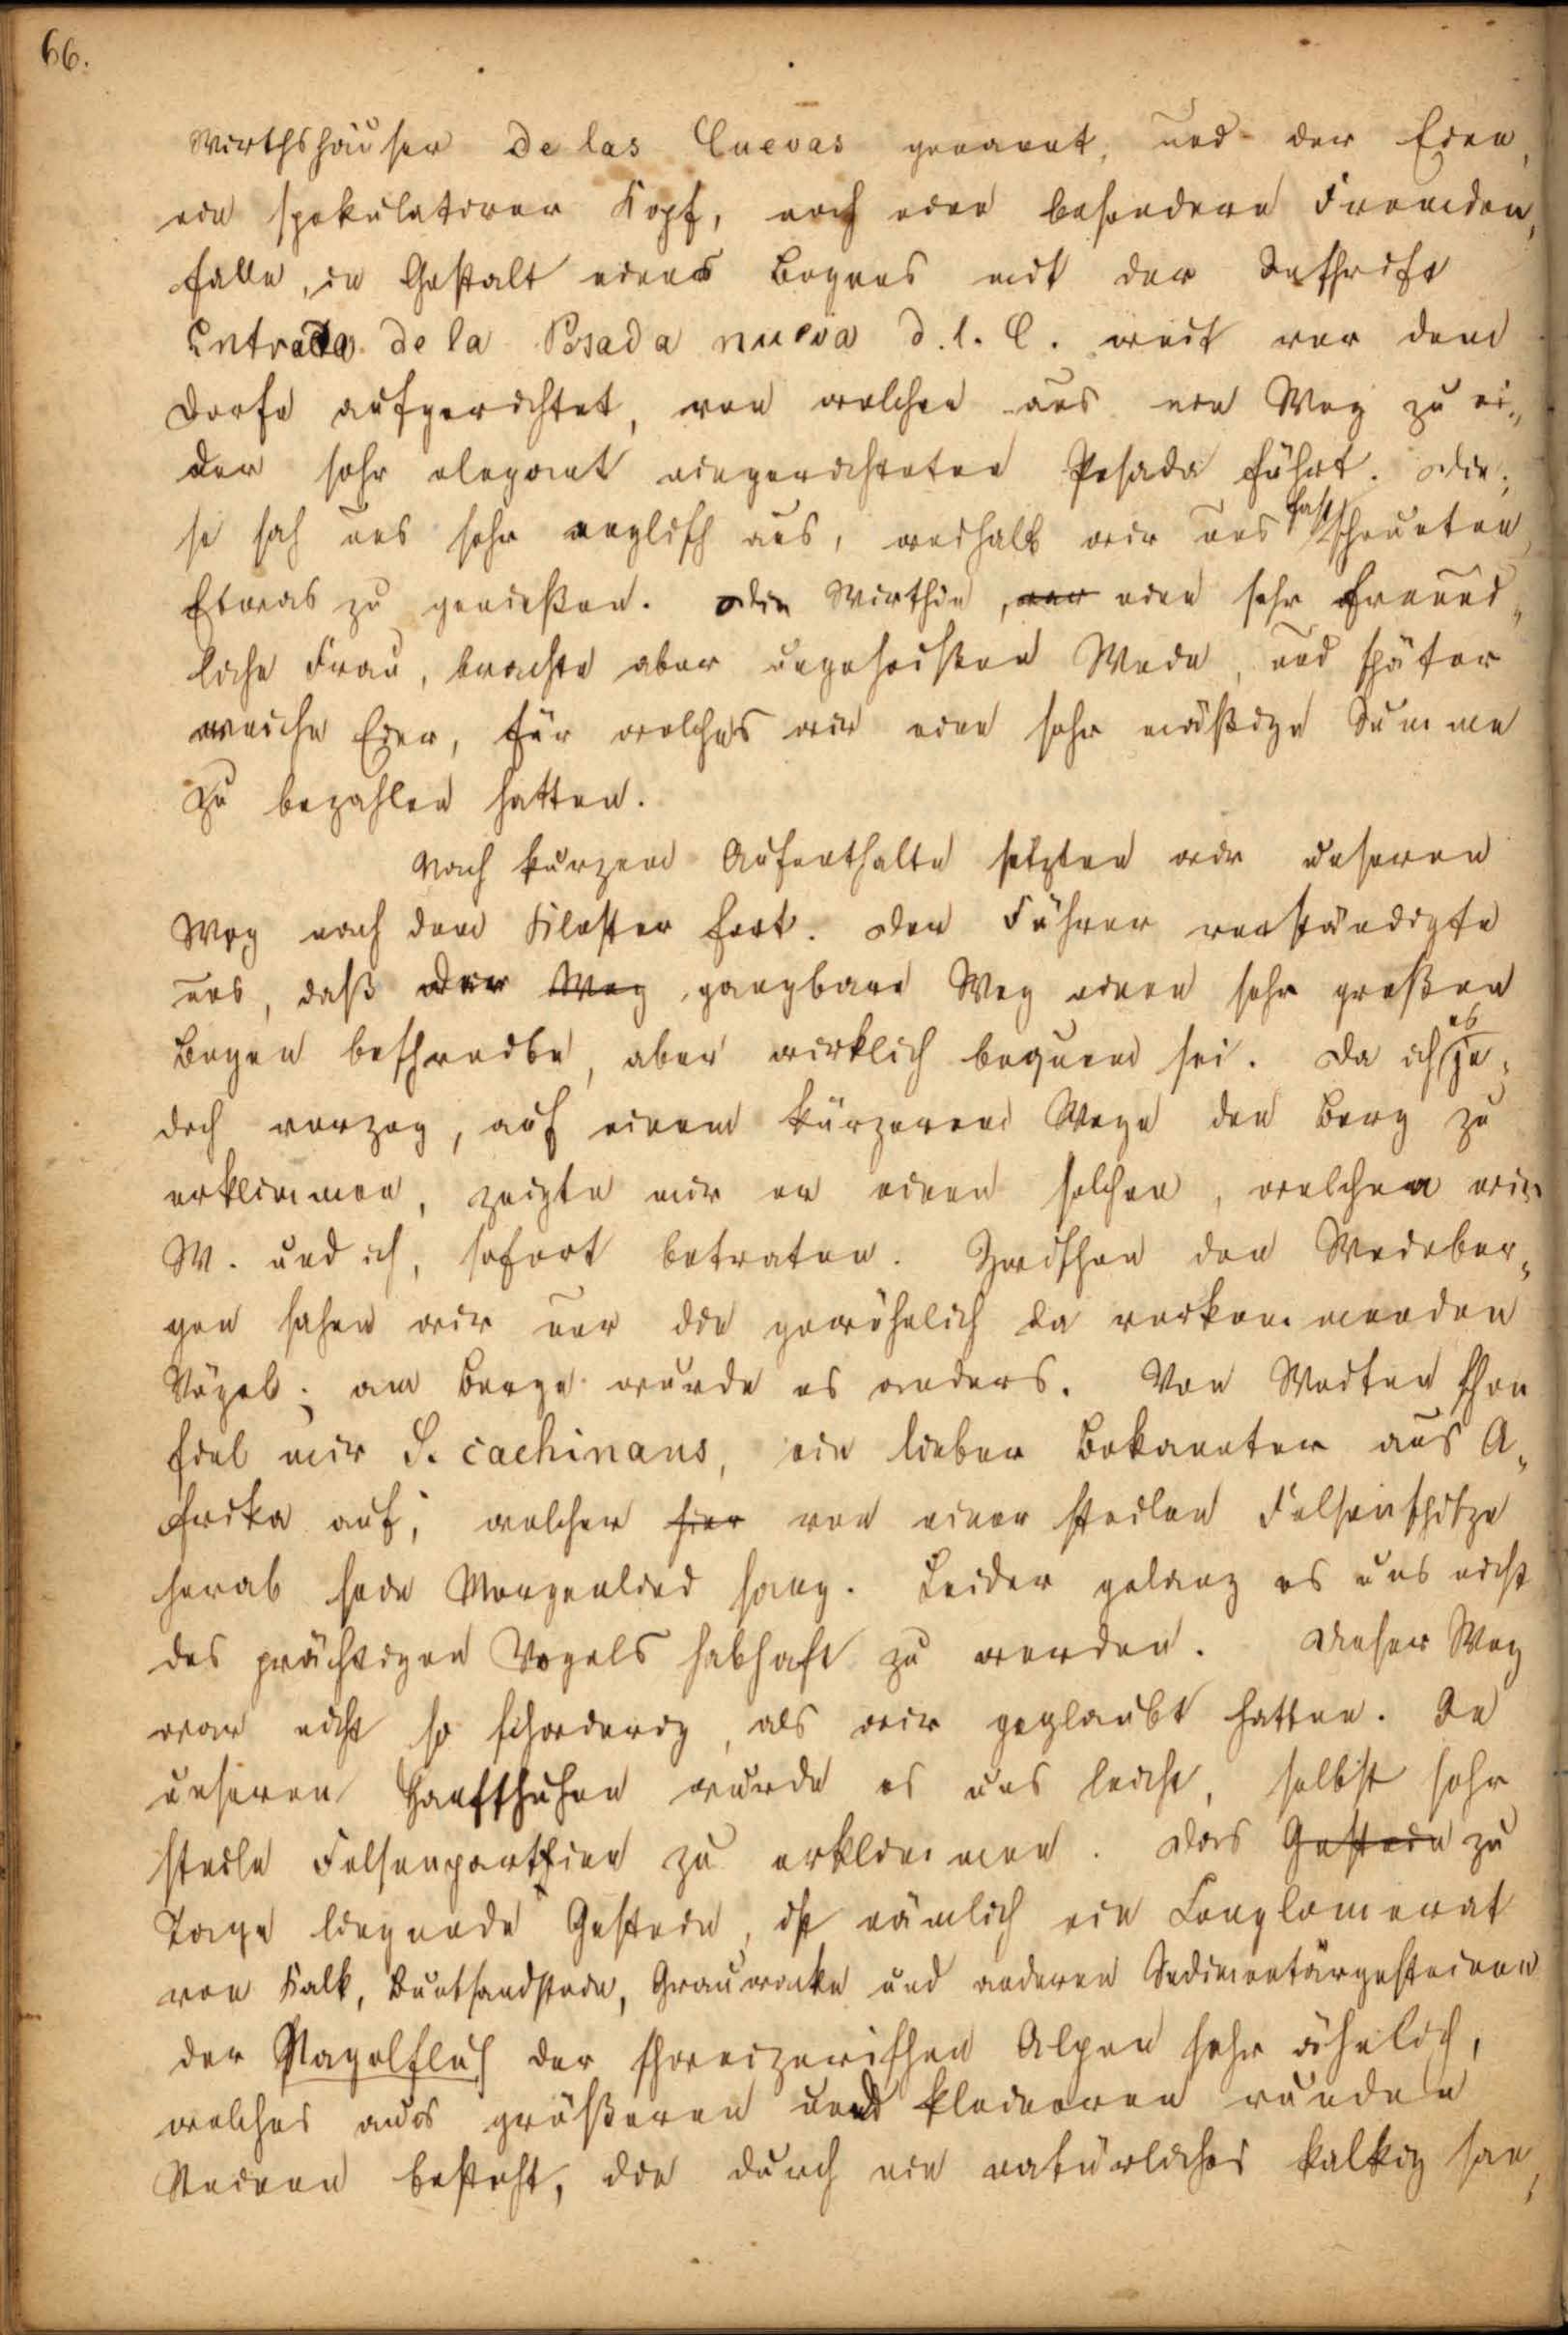 66.
Wirthshäuser de las Cuevas genannt, und der Eine,
ein spekulativer Kopf, noch eine besondere Fremden„
falle, in Gestalt eines Bogens mit der Inschrift
Entrada de la Posada nueva d. l. C. weit vor dem
Dorfe aufgerichtet, von welchen aus ein Weg zu ei„
der sehr elegant eingerichteten Posada führt. Die„
se sah uns sehr englisch aus, weshalb wir uns fast scheueten
Etwas zu genießen. Die Wirthin, eine sehr freund„
liche Frau, brachte aber ungeheißen Wein, und später
weiche Eier, für welches wir eine sehr mäßige Summe
zu bezahlen hatten.
Nach kurzem Aufenthalte setzten wir unseren
Weg nach dem Kloster fort. Der Führer verständigte
uns, daß der Weg gangbare Weg einen sehr großen
Bogen beschreibe, aber wirklich bequem sei. Da ich es je„
doch vorzog, auf einem kürzeren Wege den Berg zu
erklimmen, zeigte mir er einen solchen, welchen wir
W. und ich, sofort betraten. Zwischen den Weinber„
gen sahen wir nur die gewöhnlich da vorkommenden
Vögel; am Berge wurde es anders. Von Weiten schon
fiel mir S. cachinans, ein lieber Bekannter aus A„
frika auf, welcher hier von einer steilen Felsenspitze
herab sein Morgenlied sang. Leider gelang es uns nicht
des prächtigen Vogels habhaft zu werden. Dieser Weg
war nicht so schwierig, als wir geglaubt hatten. In
unseren Hanfschuhen wurde es uns leicht, selbst sehr
steile Felsenparthien zu erklimmen. Das Gestein zu
Tage liegende Gestein, ist nämlich ein Conglomerat
von Kalk, Buntsandstein, Grauwacke und anderen Sedimentärgesteinen
der Nagelfluh der schweizerischen Alpen sehr ähnlich,
welches aus größeren und kleineren runden
Steinen besteht, die durch ein natürliches kalkig san„